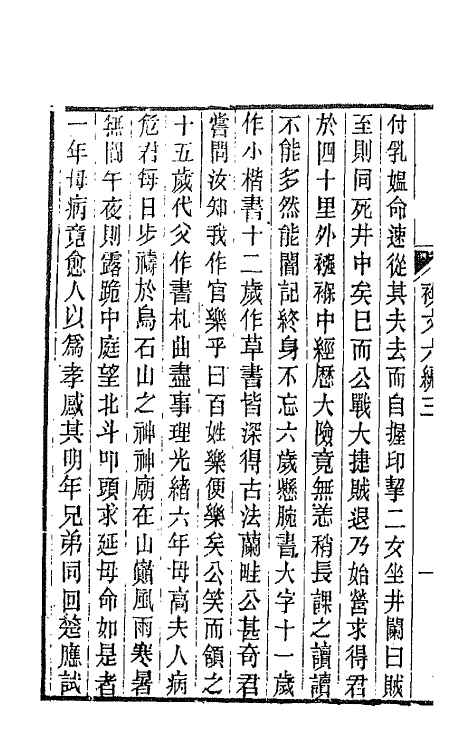 付乳媼命速從其夫去而自握印挈二女坐井闌曰賊
至則同死井中矣巳而公戰大捷賊退乃始營求得君
於四十里外襁褓中經歷大險竟無恙稍長課之讀讀
不能多然能闇記終身不忘六歲懸腕書大字十一歲
作小楷書十二歲作草書皆深得古法蘭畦公甚奇君
嘗問汝知我作官樂乎曰百姓樂便樂矣公笑而頷之
十五歲代父作書札曲盡事理光緒六年母高夫人病
危君每日步禱於烏石山之神神廟在山巔風雨寒暑
無間午夜則露跪中庭望北斗叩頭求延母命如是者
一年母病竟愈人以爲孝感其明年兄弟同回楚應試
襍文六編三
一